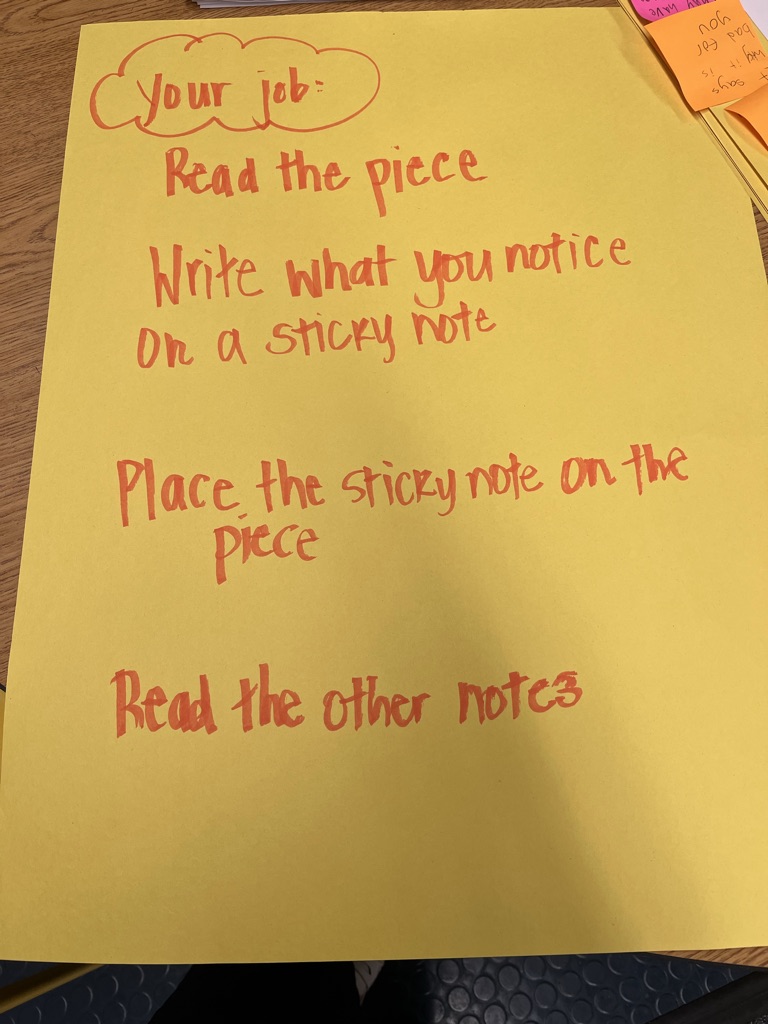 your job:
Read the piece
Write what you notice
on a sticky note
Place the sticky note on the
piece
Read the other notes
you
bad for
why it is
says